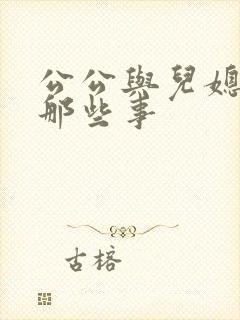 公公與兒媳
那些事
古榕